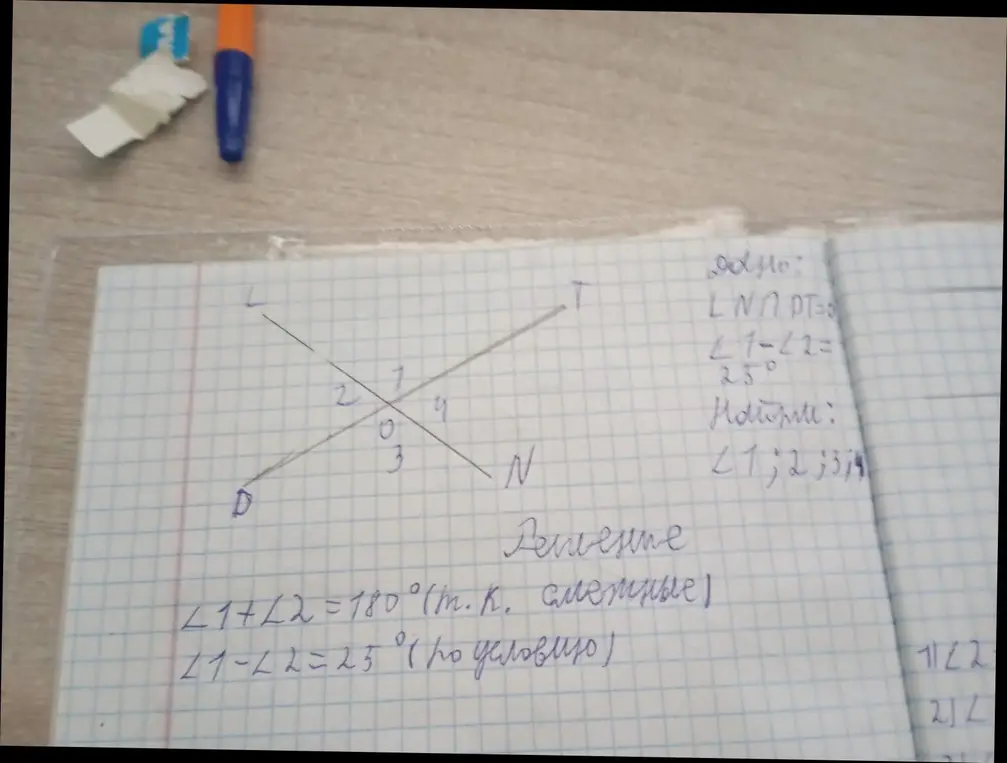 L
T
2
1
4
O
3
D
N
Дано:
LN∩DT=O
∠1-∠2=
25°
Найти:
∠1;2;3;4
Решение
∠1+∠2=180°(т.к. смежные)
∠1-∠2=25°(по условию)
1)∠2
2)∠